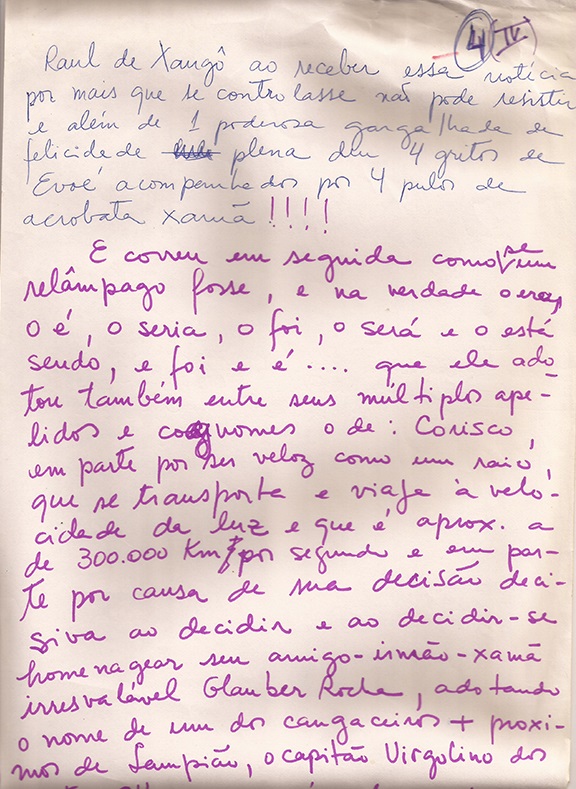 4 (IV)
Raul de Xangô ao receber essa notícia
por mais que se controlasse não pode resistir
e além de 1 poderosa gargalhada de
felicidade plena deu 4 gritos de
Evoé acompanhados por 4 pulos de
acrobata xamã !!!!
E correu em seguida como se um
relâmpago fosse, e na verdade o era,
o é, o seria, o foi, o será e o está
sendo, e foi e é .... que ele ado-
tou também entre seus múltiplos ape-
lidos e cognomes o de: Corisco,
em parte por ser veloz como um raio,
que se transporta e viaja à velo-
cidade da luz e que é aprox. a
de 300.000 Km por segundo e em par-
te por causa de sua decisão deci-
siva ao decidir e ao decidir-se
homenagear seu amigo-irmão-xamã
irresvalável Glauber Rocha, adotando
o nome de um dos cangaceiros + proxi-
mos de Lampião, o capitão Virgolino dos